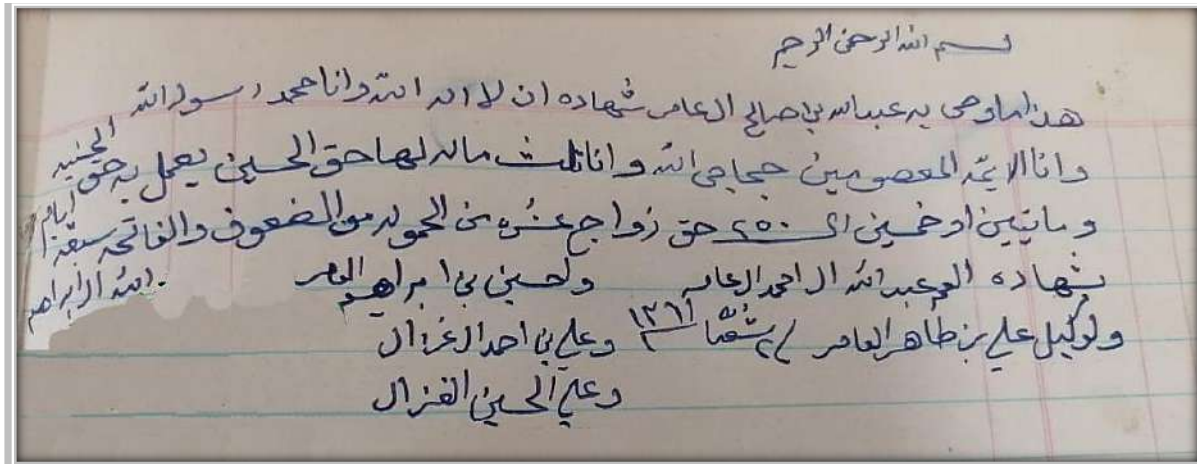 بسم الله الرحمن الرحيم
هذا ما وصى به عبدالله بن صالح العامر شهاده ان لا اله الا الله وانا محمد رسول الله
وانا الايمه المعصومين حجاجي الله وانا ثلث ماله لها حق الحسين يعمل به حق
وماتيين او خمسين ٢٥٠ حق زواج عشره من الحموله من الضعوف والفاتحه سبعة ايام
بشهاده العم عبدالله ال احمد العامر ولحسين بن ابراهيم العامر
ولوكيل علي بن طاهر العامر ١٣٦١ وعلي بن احمد الغزال
وعلي الحسين الغزال